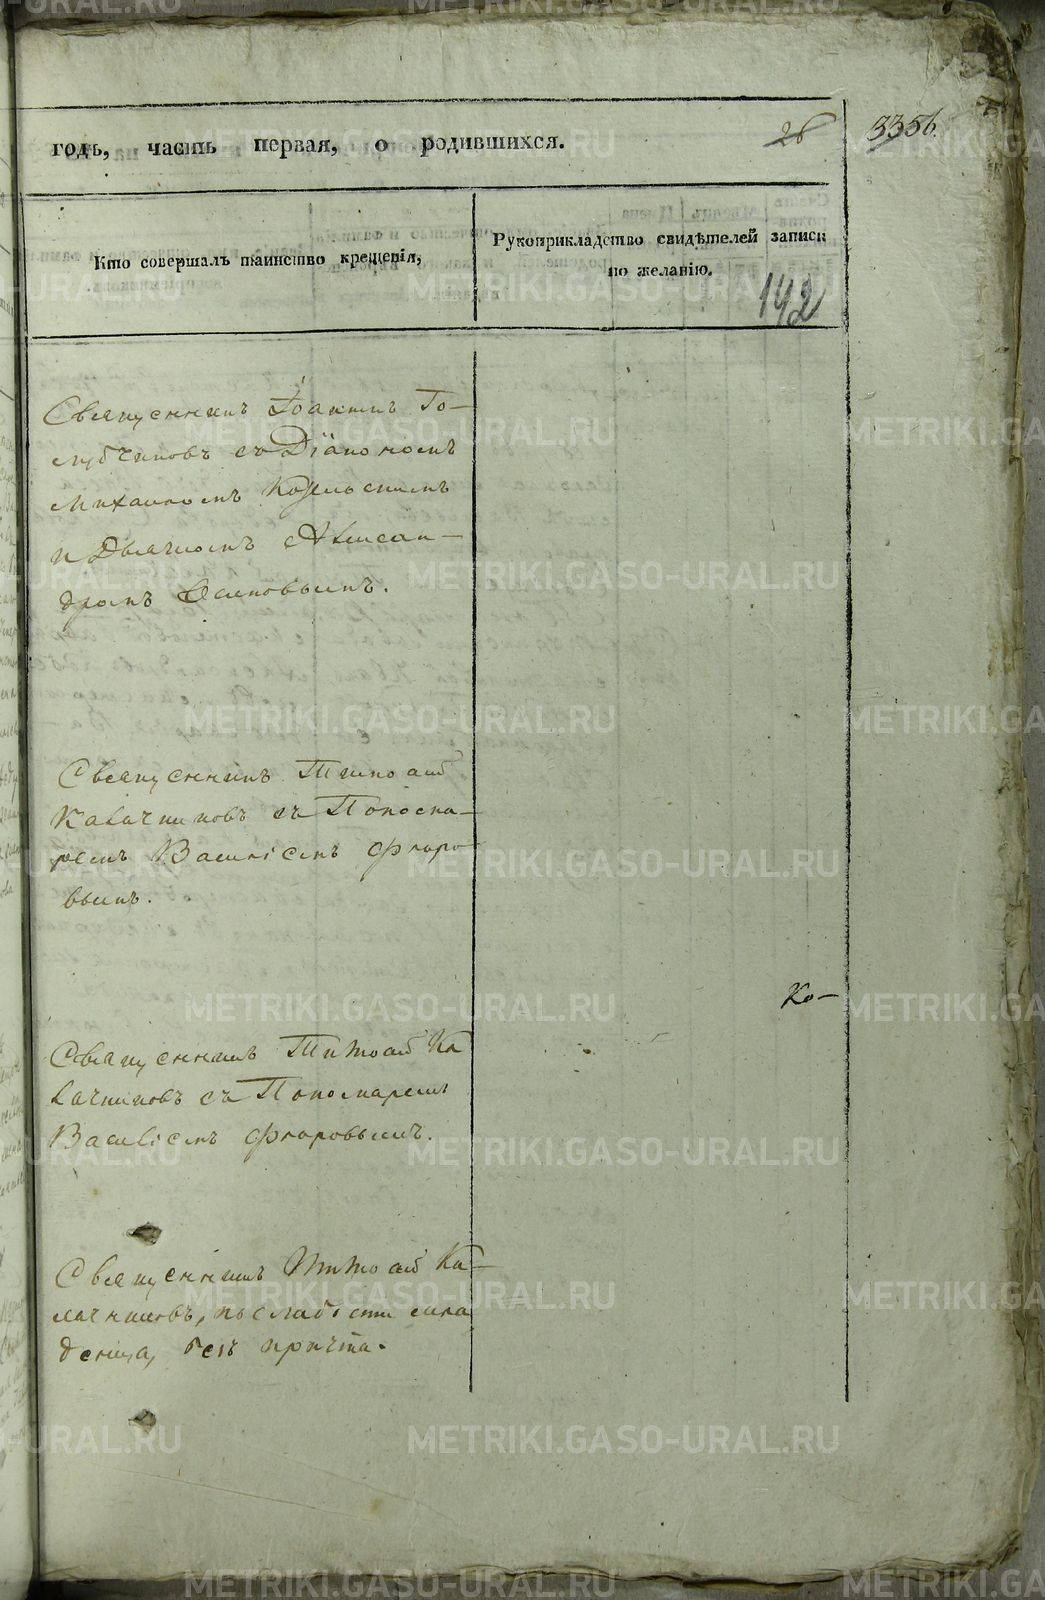 годъ, часть первая, о родившихся.
26
3356.
Кто совершалъ таинство крещенія,
Рукоприкладство свидѣтелей записи
по желанію.
142
Священникъ Іоаннъ Го-
лубчиковъ съ Діакономъ
Михаиломъ
и Дьячкомъ Алексан-
дромъ Осиповымъ.
Священникъ Тимоѳей
Калачниковъ съ Понома-
ремъ Василіемъ Флоро-
вымъ.
Ко-
Священникъ Тимоѳей Ка
лачниковъ съ Пономаремъ
Василіемъ Флоровымъ.
Священникъ Тимоѳей Ка-
лачниковъ, по слабости мла
денца, безъ причта.
METRIKI.GASO-URAL.RU